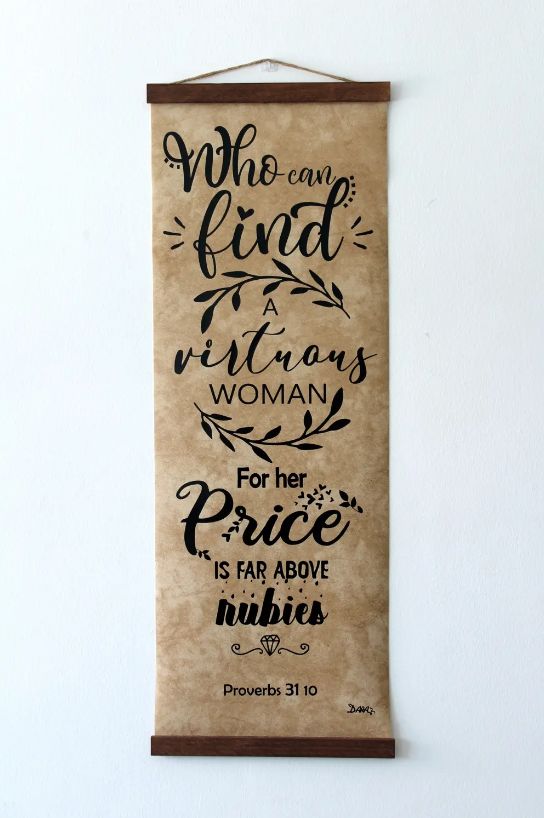 Who can
find
A
virtuous
WOMAN
For her
Price
IS FAR ABOVE
rubies
Proverbs 31 10